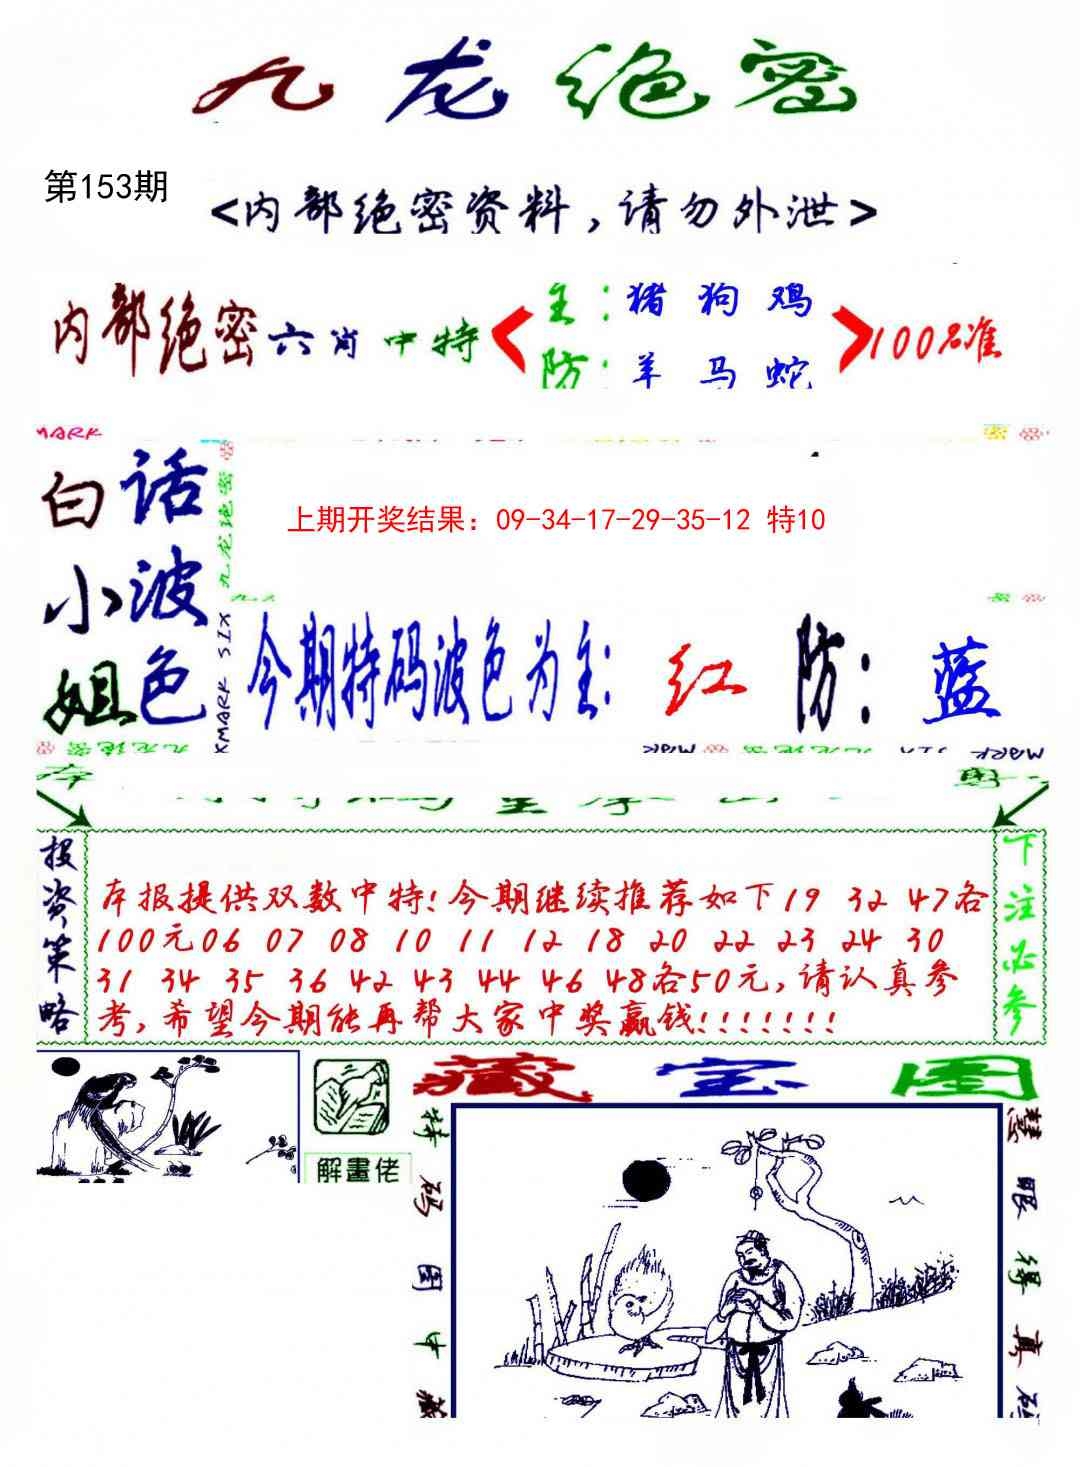 九龙绝密
第153期
<内部绝密资料,请勿外泄>
内部绝密六肖中特
主:猪 狗 鸡
防:羊 马 蛇
100%准
MARK
白话
小波
姐色
九龙绝密
上期开奖结果：09-34-17-29-35-12 特10
XMARK SIX
今期特码波色为主: 红 防: 蓝
九龙绝密
MARK
九龙绝密
MARK
投资策略
本报提供双数中特!今期继续推荐如下19 32 47各
100元06 07 08 10 11 12 18 20 22 23 24 30
31 34 35 36 42 43 44 46 48各50元,请认真参
考,希望今期能再帮大家中奖赢钱!!!!!!!
下注必参
解畫佬
藏宝图
特码图中藏
慧眼得真